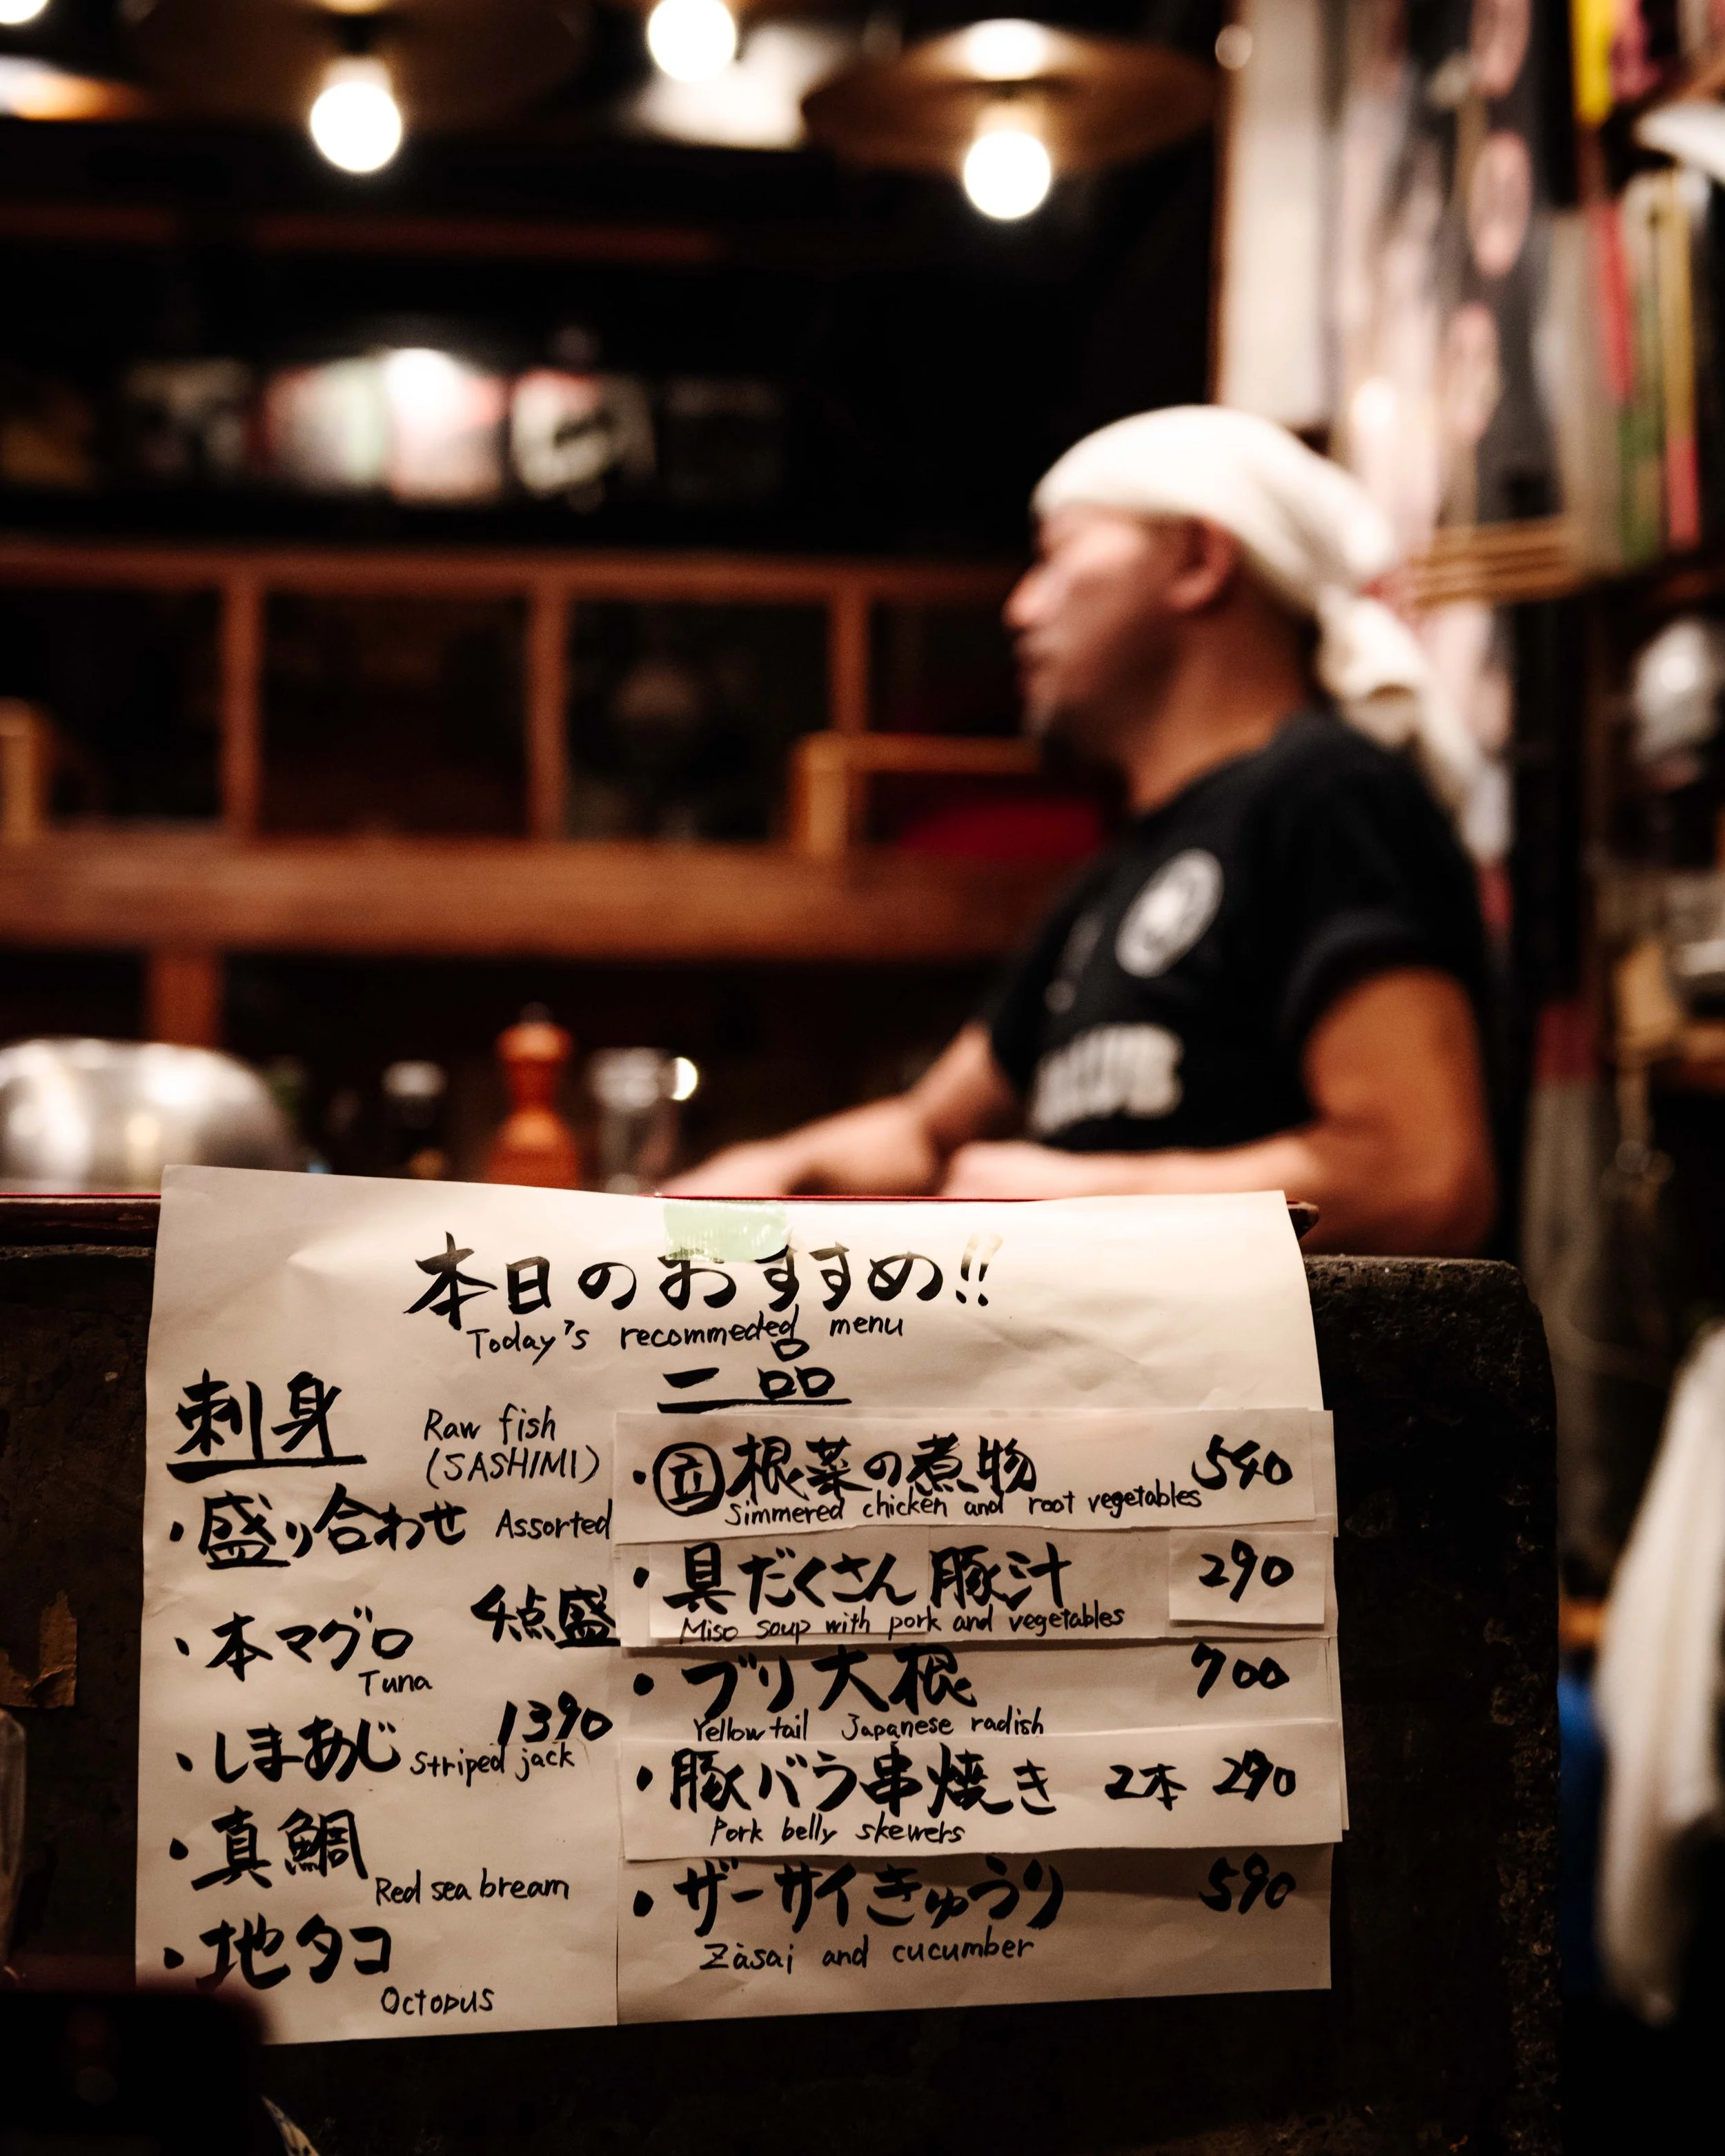 本日のおすすめ!!
Today's recommeded menu
刺身
Raw fish
(SASHIMI)
・盛り合わせ Assorted
4点盛
・本マグロ
Tuna
1390
・しまあじ Striped jack
・真鯛
Red sea bream
・地タコ
Octopus
一品
・根菜の煮物 540
Simmered chicken and root vegetables
・具だくさん豚汁 290
Miso soup with pork and vegetables
・ブリ大根 700
Yellow tail Japanese radish
・豚バラ串焼き 2本 290
Pork belly skewers
・ザーサイきゅうり 590
Zàsai and cucumber